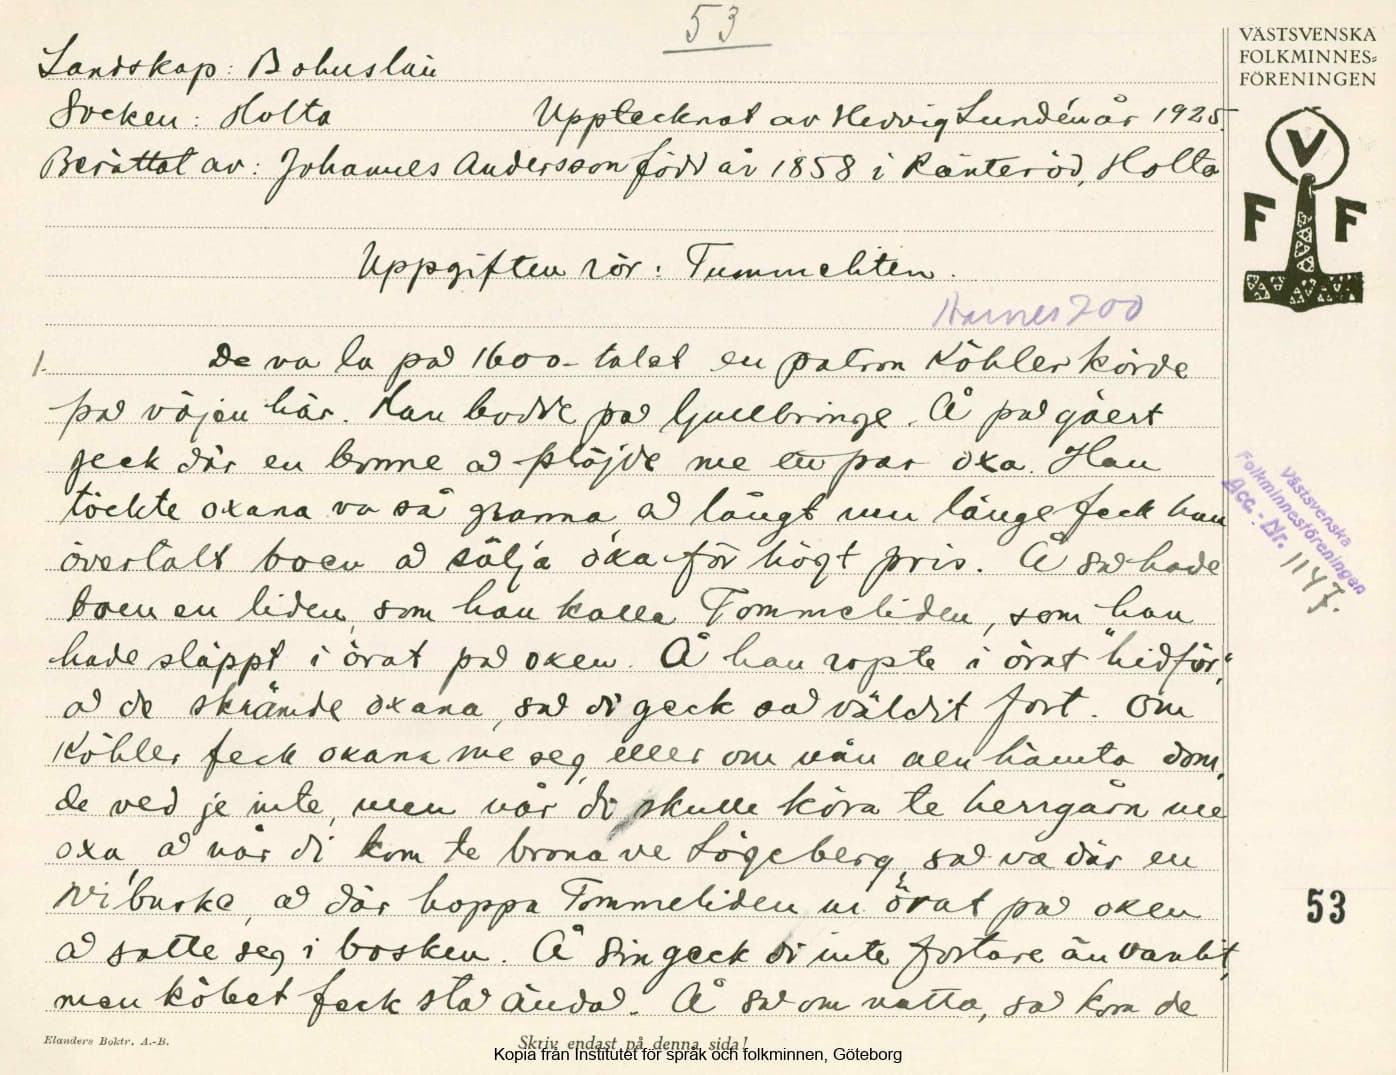 53
VÄSTSVENSKA
FOLKMINNES=
FÖRENINGEN
Landskap: Bohuslän
Socken: Holta Upptecknat av Hedvig Lundén år 1925.
Berättat av: Johannes Andersson född år 1858 i Ränteröd, Holta
V
F F
Uppgiften rör: Tummeliten.
1. De va la på 1600-talet en patron Köhler körde
på väjen här. Han bodde på Ljungbringe. Å på gåert
geck där en bonne å plöjde me en par oxa. Han
töckte oxana va så granna å långt um länge feck han
övertalt boen å sälja oxa för högt pris. Å så hade
boen en liden, som han kalla Tommeliden, som han
hade släppt i örat på oxen. Å han ropte i örat "hidför,"
å de skrämde oxana, så di geck så väldit fort. Om
Köhler feck oxana me seg, eller om nån aen hämta dom,
de ved je inte, men när di skulle köra te herrgårn me
oxa å när di kom te brona ve Lögeberg, så va där en
viburke, å där hoppa Tommeliden ur örat på oxen
å satte seg i bosken. Å sin geck di inte fortare än vanlit,
men köbet feck stå ändå. Å så om natta, så kom de
Västsvenska
Folkminnesföreningen
Acc.-Nr. 1147.
53
Elanders Boktr. A.-B.
Skriv endast på denna sida!
Kopia från Institutet för språk och folkminnen, Göteborg